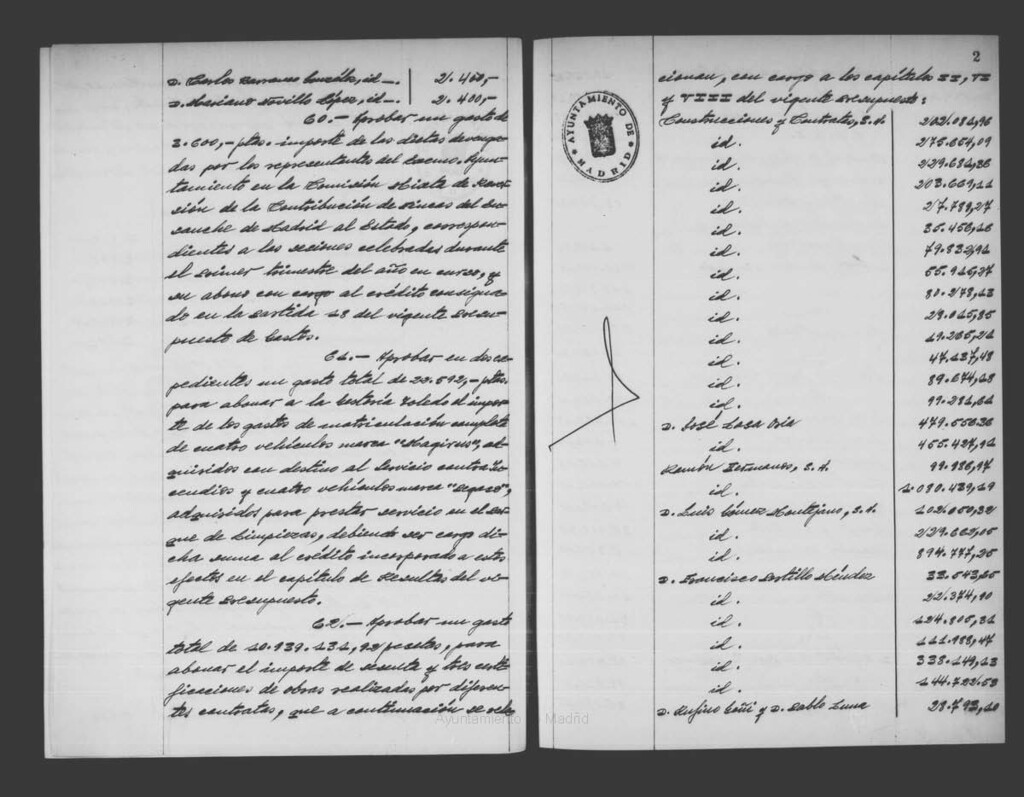 D. Carlos Carranco González, id —. 2.400,-
D. Mariano Novillo López, id —. 2.400,-
60.— Aprobar un gasto de
2.600,- ptas. importe de las dietas devenga-
das por los representantes del Excmo. Ayun-
tamiento en la Comisión Mixta de Rever-
sión de la Contribución de Fincas del En-
sanche de Madrid al Estado, correspon-
dientes a las sesiones celebradas durante
el primer trimestre del año en curso, y
su abono con cargo al crédito consigna-
do en la partida 18 del vigente Presu-
puesto de Gastos.
61.— Aprobar en dos ex-
pedientes un gasto total de 22.592,- ptas.
para abonar a la Gestoría Toledo el impor-
te de los gastos de matriculación completa
de cuatro vehículos marca "Magirus", ad-
quiridos con destino al Servicio contra In-
cendios y cuatro vehículos marca "Pegaso",
adquiridos para prestar servicio en el Par-
que de Limpiezas, debiendo ser cargo di-
cha suma al crédito incorporado a estos
efectos en el capítulo de Resultas del vi-
gente Presupuesto.
62.— Aprobar un gasto
total de 10.939.131,92 pesetas, para
abonar el importe de sesenta y tres certi-
ficaciones de obras realizadas por diferen-
tes contratas, que a continuación se rela-
Ayuntamiento de Madrid
2
AYUNTAMIENTO DE MADRID
cionan, con cargo a los capítulos II, VI
y VIII del vigente Presupuesto:
Construcciones y Contratas, S.A. 202.081,96
id. 275.664,09
id. 229.681,26
id. 203.669,11
id. 27.788,27
id. 35.456,16
id. 79.832,91
id. 55.916,27
id. 80.278,13
id. 29.015,85
id. 19.235,21
id. 47.137,48
id. 89.674,18
id. 99.281,61
D. José Lasa Oria 479.550,26
id. 455.427,91
Ramón Hermanos, S.A. 99.986,97
id. 1.080.429,19
D. Luis Gómez Montejano, S.A. 102.050,32
id. 229.662,05
id. 894.777,25
D. Francisco Portillo Méndez 32.543,25
id. 22.374,90
id. 124.805,31
id. 111.988,47
id. 338.149,13
id. 144.722,53
D. Rufino Goñi y D. Pablo Luna 28.793,10